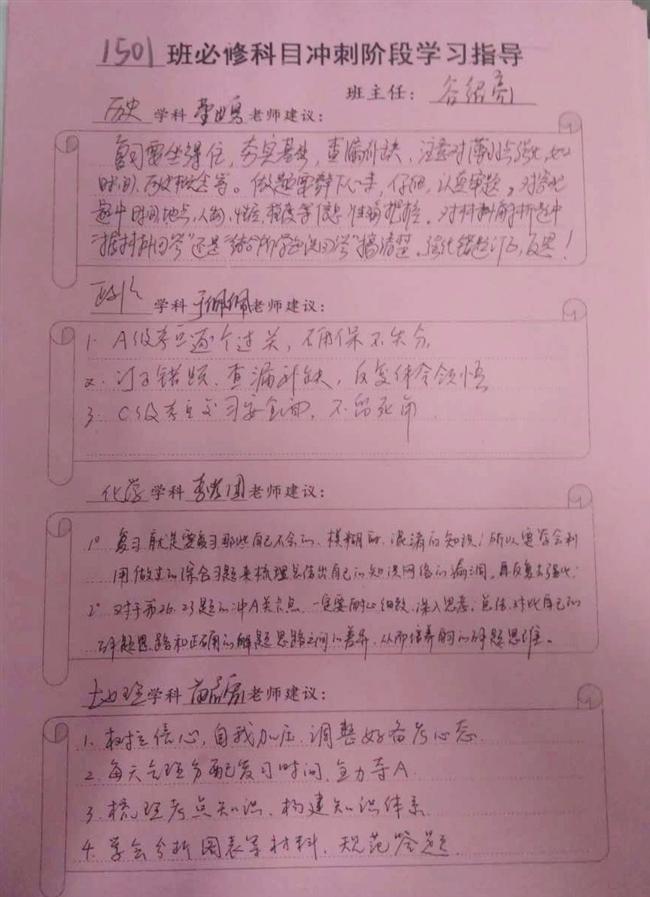 1501班必修科目冲刺阶段学习指导
班主任：谷绍亮
历史学科老师建议：
复习要坐得住，夯实基础，查漏补缺，注意对薄弱点强化，如
时间、历史概念等。做题要静下心来，仔细，认真审题。对选择
题中时间地点，人物，性质，程度等信息准确把握。对材料解析题中
"据材料回答"还是"结合所学知识回答"搞清楚。强化错题订正，反思！
政治学科于佩佩老师建议：
1. A级考点逐个过关，确保不失分
2. 订正错题，查漏补缺，反复体会领悟
3. C级考点复习要全面，不留死角
化学学科老师建议：
1° 复习就是要复习那些自己不会的、模糊的、混淆的知识！所以要学会利
用做过的综合习题来梳理总结出自己的知识网络的漏洞，再反复去强化；
2° 对于第26、23题的冲A关键点，一定要耐心细致，深入思考，总结、对比自己的
解题思路和正确的解题思路之间的差异，从而培养的解题思维。
地理学科老师建议：
1. 树立信心，自我加压，调整好备考心态
2. 每天合理分配复习时间，全力夺A
3. 梳理考点知识，构建知识体系
4. 学会分析图表等材料，规范答题